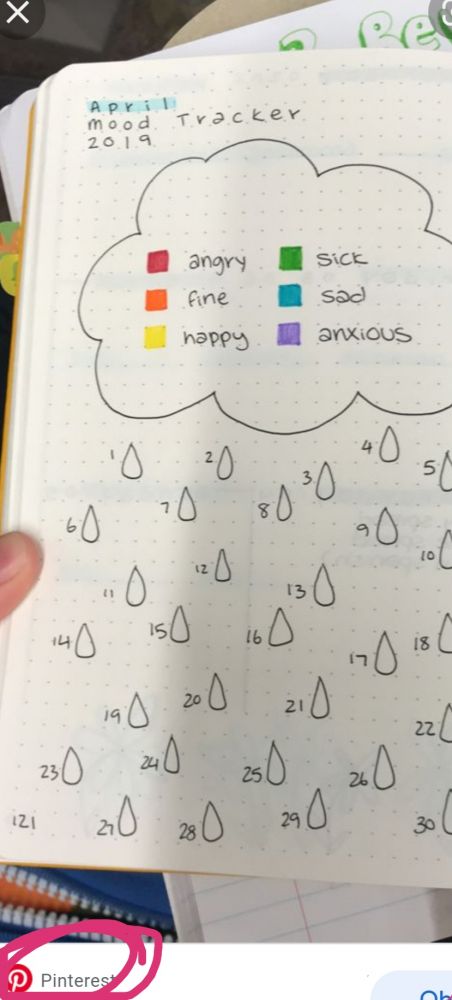 April
mood Tracker
2019
angry
sick
fine
sad
happy
anxious
1
2
3
4
5
6
7
8
9
10
11
12
13
14
15
16
17
18
19
20
21
22
23
24
25
26
27
28
29
30
121
Pinterest